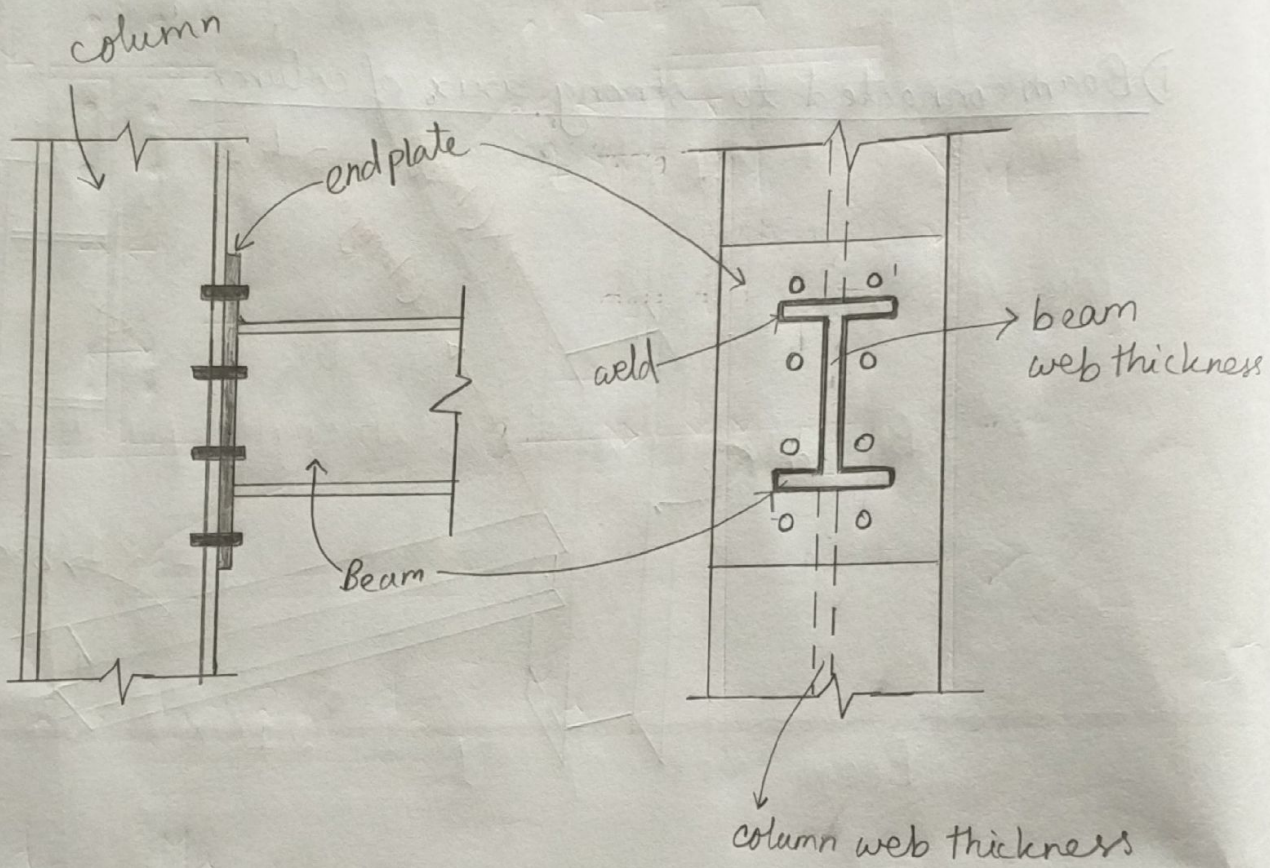 column
endplate
weld
beam
web thickness
Beam
column web thickness